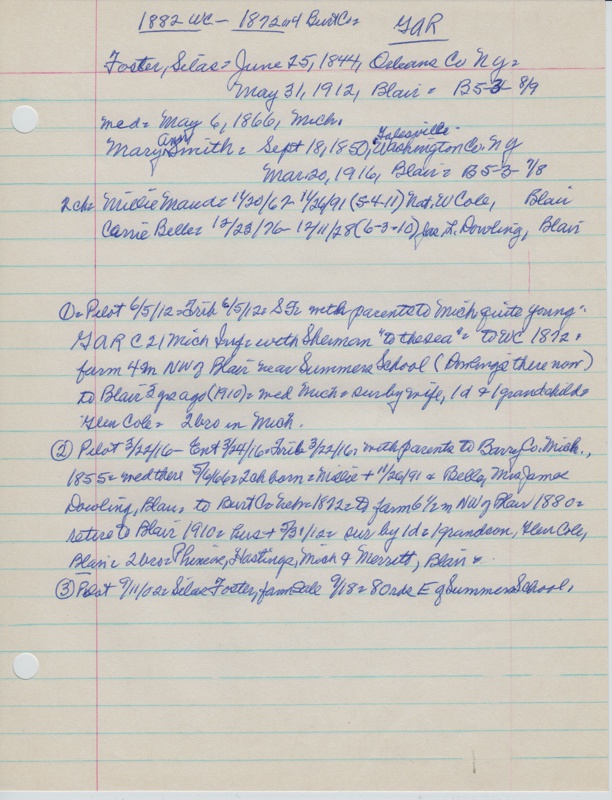 1882 WC - 1872 or 4 Burt Co = GAR
Foster, Silas = June 25, 1844, Orleans Co N.y. =
May 31, 1912, Blair = B5-3- 8/9
med = May 6, 1866, Mich.
Mary Ann Smith = Sept 18, 1850, Galesville Washington Co. NY
Mar. 20, 1916, Blair = B5-3- 7/8
2 ch = Millie Maud = 11/20/67 - 11/26/91 (5-4-11) Nat. W Cole, Blair
Carrie Belle = 12/23/76 - 12/11/28 (6-3-10) Jas. L. Dowling, Blair
① = Pilot 6/5/12 = Trib 6/5/12 = SF = with parents to Mich quite young"
GAR C 21 Mich Inf = with Sherman "to the sea" = to WC 1872 =
farm 4 m NW of Blair near Summers School (Dowlings there now)
to Blair 2 yrs ago (1910) = med Mich = sur by wife, 1 d & 1 grandchild =
Glen Cole = 2 bro in Mich.
② Pilot 3/22/16 - Ent 3/24/16 = Trib 3/22/16 = with parents to Barry Co. Mich.,
1855 = med there 5/6/66 = 2 ch born = Millie + 11/26/91 & Belle, Mrs James
Dowling, Blair = to Burt Co Neb = 1872 = to farm 6 1/2 m NW of Blair 1880 =
retire to Blair 1910 = hus + 5/31/12 = sur by 1 d = 1 grandson, Glen Cole,
Blair = 2 bro = Hastings, Mich & Merrett, Blair =
③ Pilot 9/11/02 = Silas Foster, farm sale 9/18 = 80 rds E of Summers School,